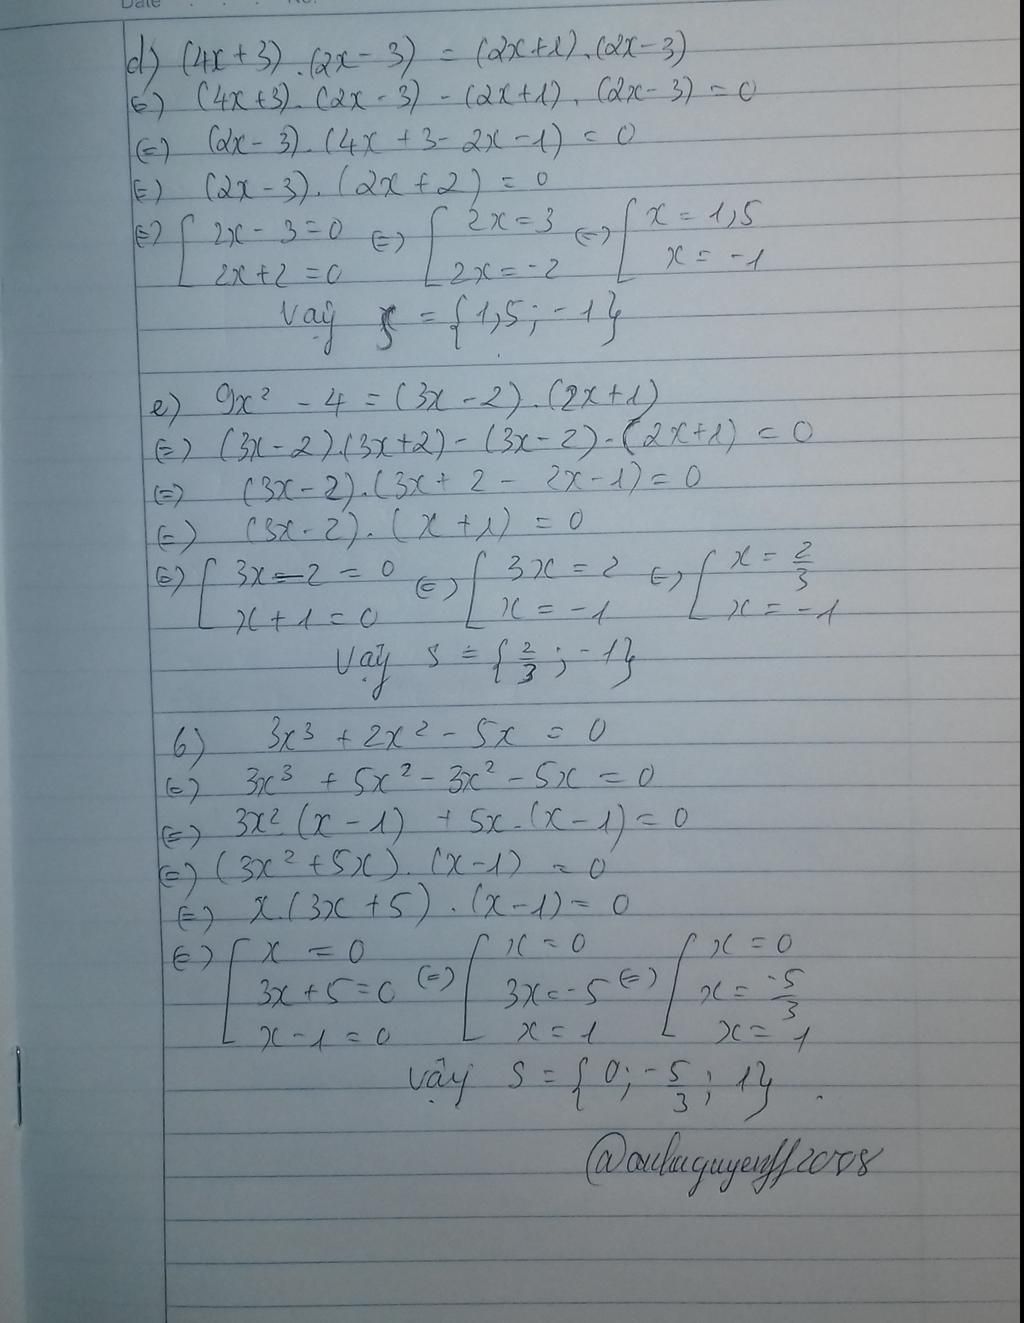 Date . . . No.
d) (4x+3).(2x-3) = (2x+1).(2x-3)
(=) (4x+3).(2x-3) - (2x+1).(2x-3) = 0
(=) (2x-3).(4x+3-2x-1) = 0
(=) (2x-3).(2x+2) = 0
(=) [ 2x-3=0 (=) [ 2x=3 (=) [ x=1,5
2x+2=0 2x=-2 x=-1
Vậy S = {1,5; -1}
e) 9x² - 4 = (3x-2).(2x+1)
(=) (3x-2).(3x+2) - (3x-2).(2x+1) = 0
(=) (3x-2).(3x+2-2x-1) = 0
(=) (3x-2).(x+1) = 0
(=) [ 3x-2=0 (=) [ 3x=2 (=) [ x=2/3
x+1=0 x=-1 x=-1
Vậy S = {2/3; -1}
6) 3x³ + 2x² - 5x = 0
(=) 3x³ + 5x² - 3x² - 5x = 0
(=) 3x²(x-1) + 5x.(x-1) = 0
(=) (3x²+5x).(x-1) = 0
(=) x.(3x+5).(x-1) = 0
(=) [ x=0 (=) [ x=0 (=) [ x=0
3x+5=0 3x=-5 x=-5/3
x-1=0 x=1 x=1
Vậy S = {0; -5/3; 1}.